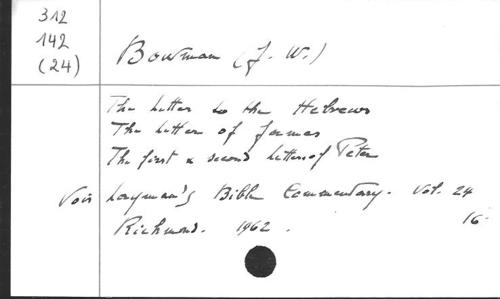 312
142
(24)
Bowman (J. W.)
The Letter to the Hebrews
The Letter of James
The first & second Letter of Peter
Voir Layman's Bible Commentary. Vol. 24
Richmond. 1962. 16